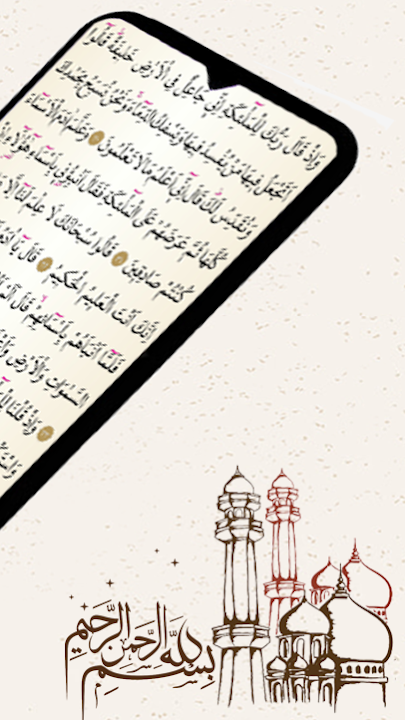 وَإِذْ قَالَ رَبُّكَ لِلْمَلٰٓئِكَةِ اِنِّي جَاعِلٌ فِي الْاَرْضِ خَلِيفَةً قَالُوٓا
اَتَجْعَلُ فِيهَا مَنْ يُفْسِدُ فِيهَا وَيَسْفِكُ الدِّمَآءَ وَنَحْنُ نُسَبِّحُ بِحَمْدِكَ
وَنُقَدِّسُ لَكَ قَالَ اِنِّيٓ اَعْلَمُ مَا لَا تَعْلَمُونَ ٣٠ وَعَلَّمَ اٰدَمَ الْاَسْمَآءَ
كُلَّهَا ثُمَّ عَرَضَهُمْ عَلَى الْمَلٰٓئِكَةِ فَقَالَ اَنْبِؤُ۫نِي بِاَسْمَآءِ هٰٓؤُلَآءِ
كُنْتُمْ صَادِقِينَ ٣١ قَالُوا سُبْحَانَكَ لَا عِلْمَ لَنَآ اِلَّا
اِنَّكَ اَنْتَ الْعَلِيمُ الْحَكِيمُ ٣٢ قَالَ يَٓا اٰدَمُ
فَلَمَّٓا اَنْبَاَهُمْ بِاَسْمَٓائِهِمْ قَالَ اَلَمْ
السَّمٰوَاتِ وَالْاَرْضِ
٣٣ وَاِذْ قُلْنَا
بِسْمِ اللهِ الرَّحْمٰنِ الرَّحِيمِ